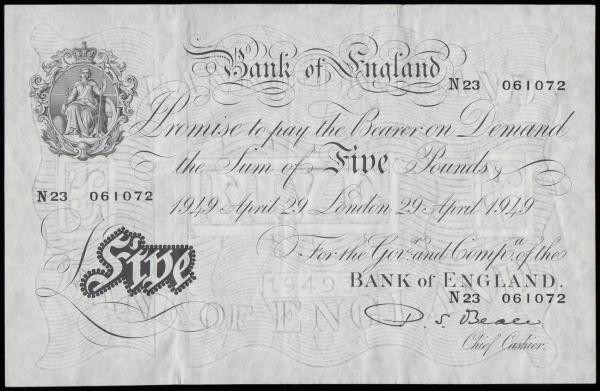 Bank of England
N23 061072
I Promise to pay the Bearer on Demand
the Sum of Five Pounds
N23 061072
1949 April 29 London 29 April 1949
For the Govr. and Compa. of the
BANK of ENGLAND.
£ Five
1949
N23 061072
P. S. Beale
Chief Cashier.
FIVE
OF ENG